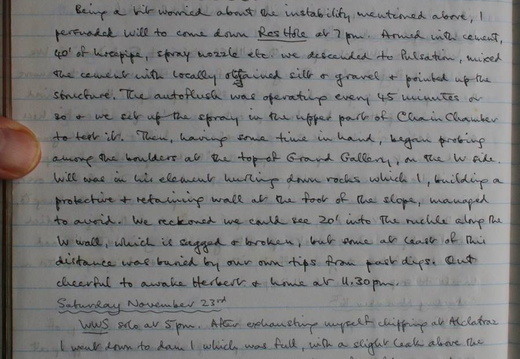 Being a bit worried about the instability mentioned above, I
persuaded Will to come down Ros Hole at 7 pm. Armed with cement,
40' of hosepipe, spray nozzle etc. we descended to Pulsation, mixed
the cement with locally obtained silt & gravel & pointed up the
structure. The autoflush was operating every 45 minutes or
so & we set up the spray in the upper part of Chain Chamber
to test it. Then, having some time in hand, began probing
among the boulders at the top of Grand Gallery, on the W side.
Will was in his element hurling down rocks which I, building a
protective & retaining wall at the foot of the slope, managed
to avoid. We reckoned we could see 20' into the ruckle along the
W wall, which is jagged & broken, but some at least of this
distance was buried by our own tips from past digs. Out
cheerful to awake Herbert & home at 11.30pm.
Saturday November 23rd
WWS solo at 5pm. After exhausting myself chipping at Alcatraz
I went down to dam 1 which was full, with a slight leak above the